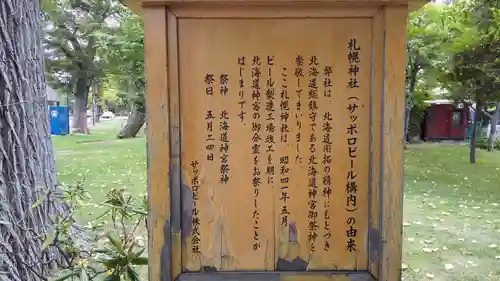 札幌神社(サッポロビール構内)の由来
弊社は、北海道開拓の精神にもとづき
北海道総鎮守である北海道神宮御祭神を
崇敬してまいりました。
ここ札幌神社は、昭和四一年五月
ビール製造工場竣工を期に
北海道神宮の御分霊をお祭りしたことが
はじまりです。
祭神 北海道神宮祭神
祭日 五月二四日
サッポロビール株式会社